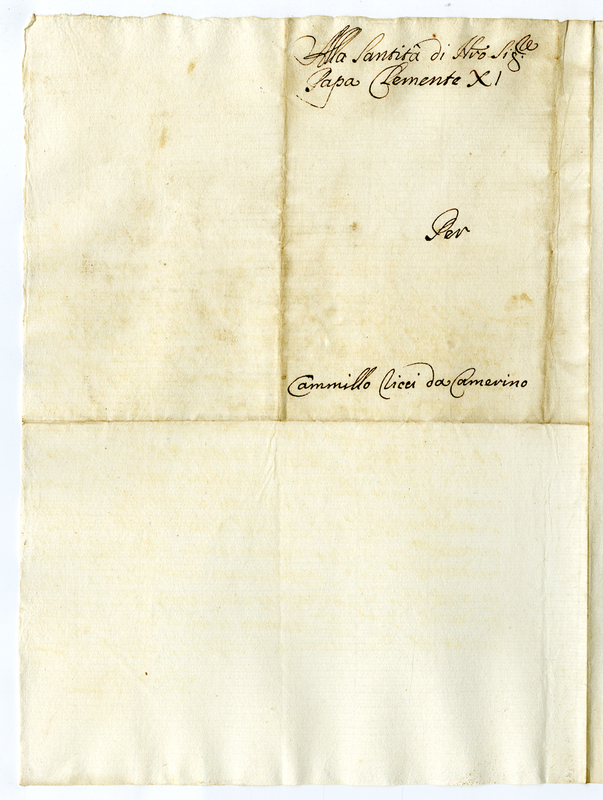 Alla Santità di Nro Sig.re
Papa Clemente XI
Per
Cammillo Cicci da Camerino